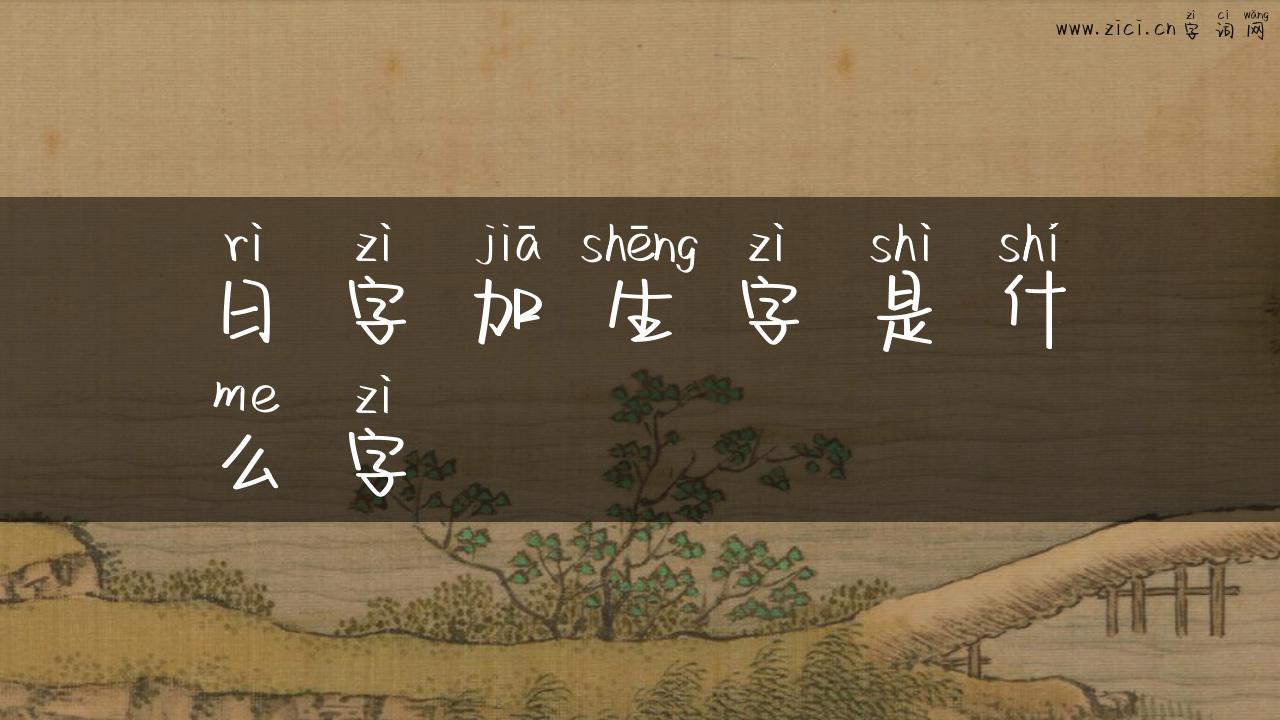 zì cí wǎng
www.zici.cn 字词网
rì zì jiā shēng zì shì shí
日字加生字是什
me zì
么字